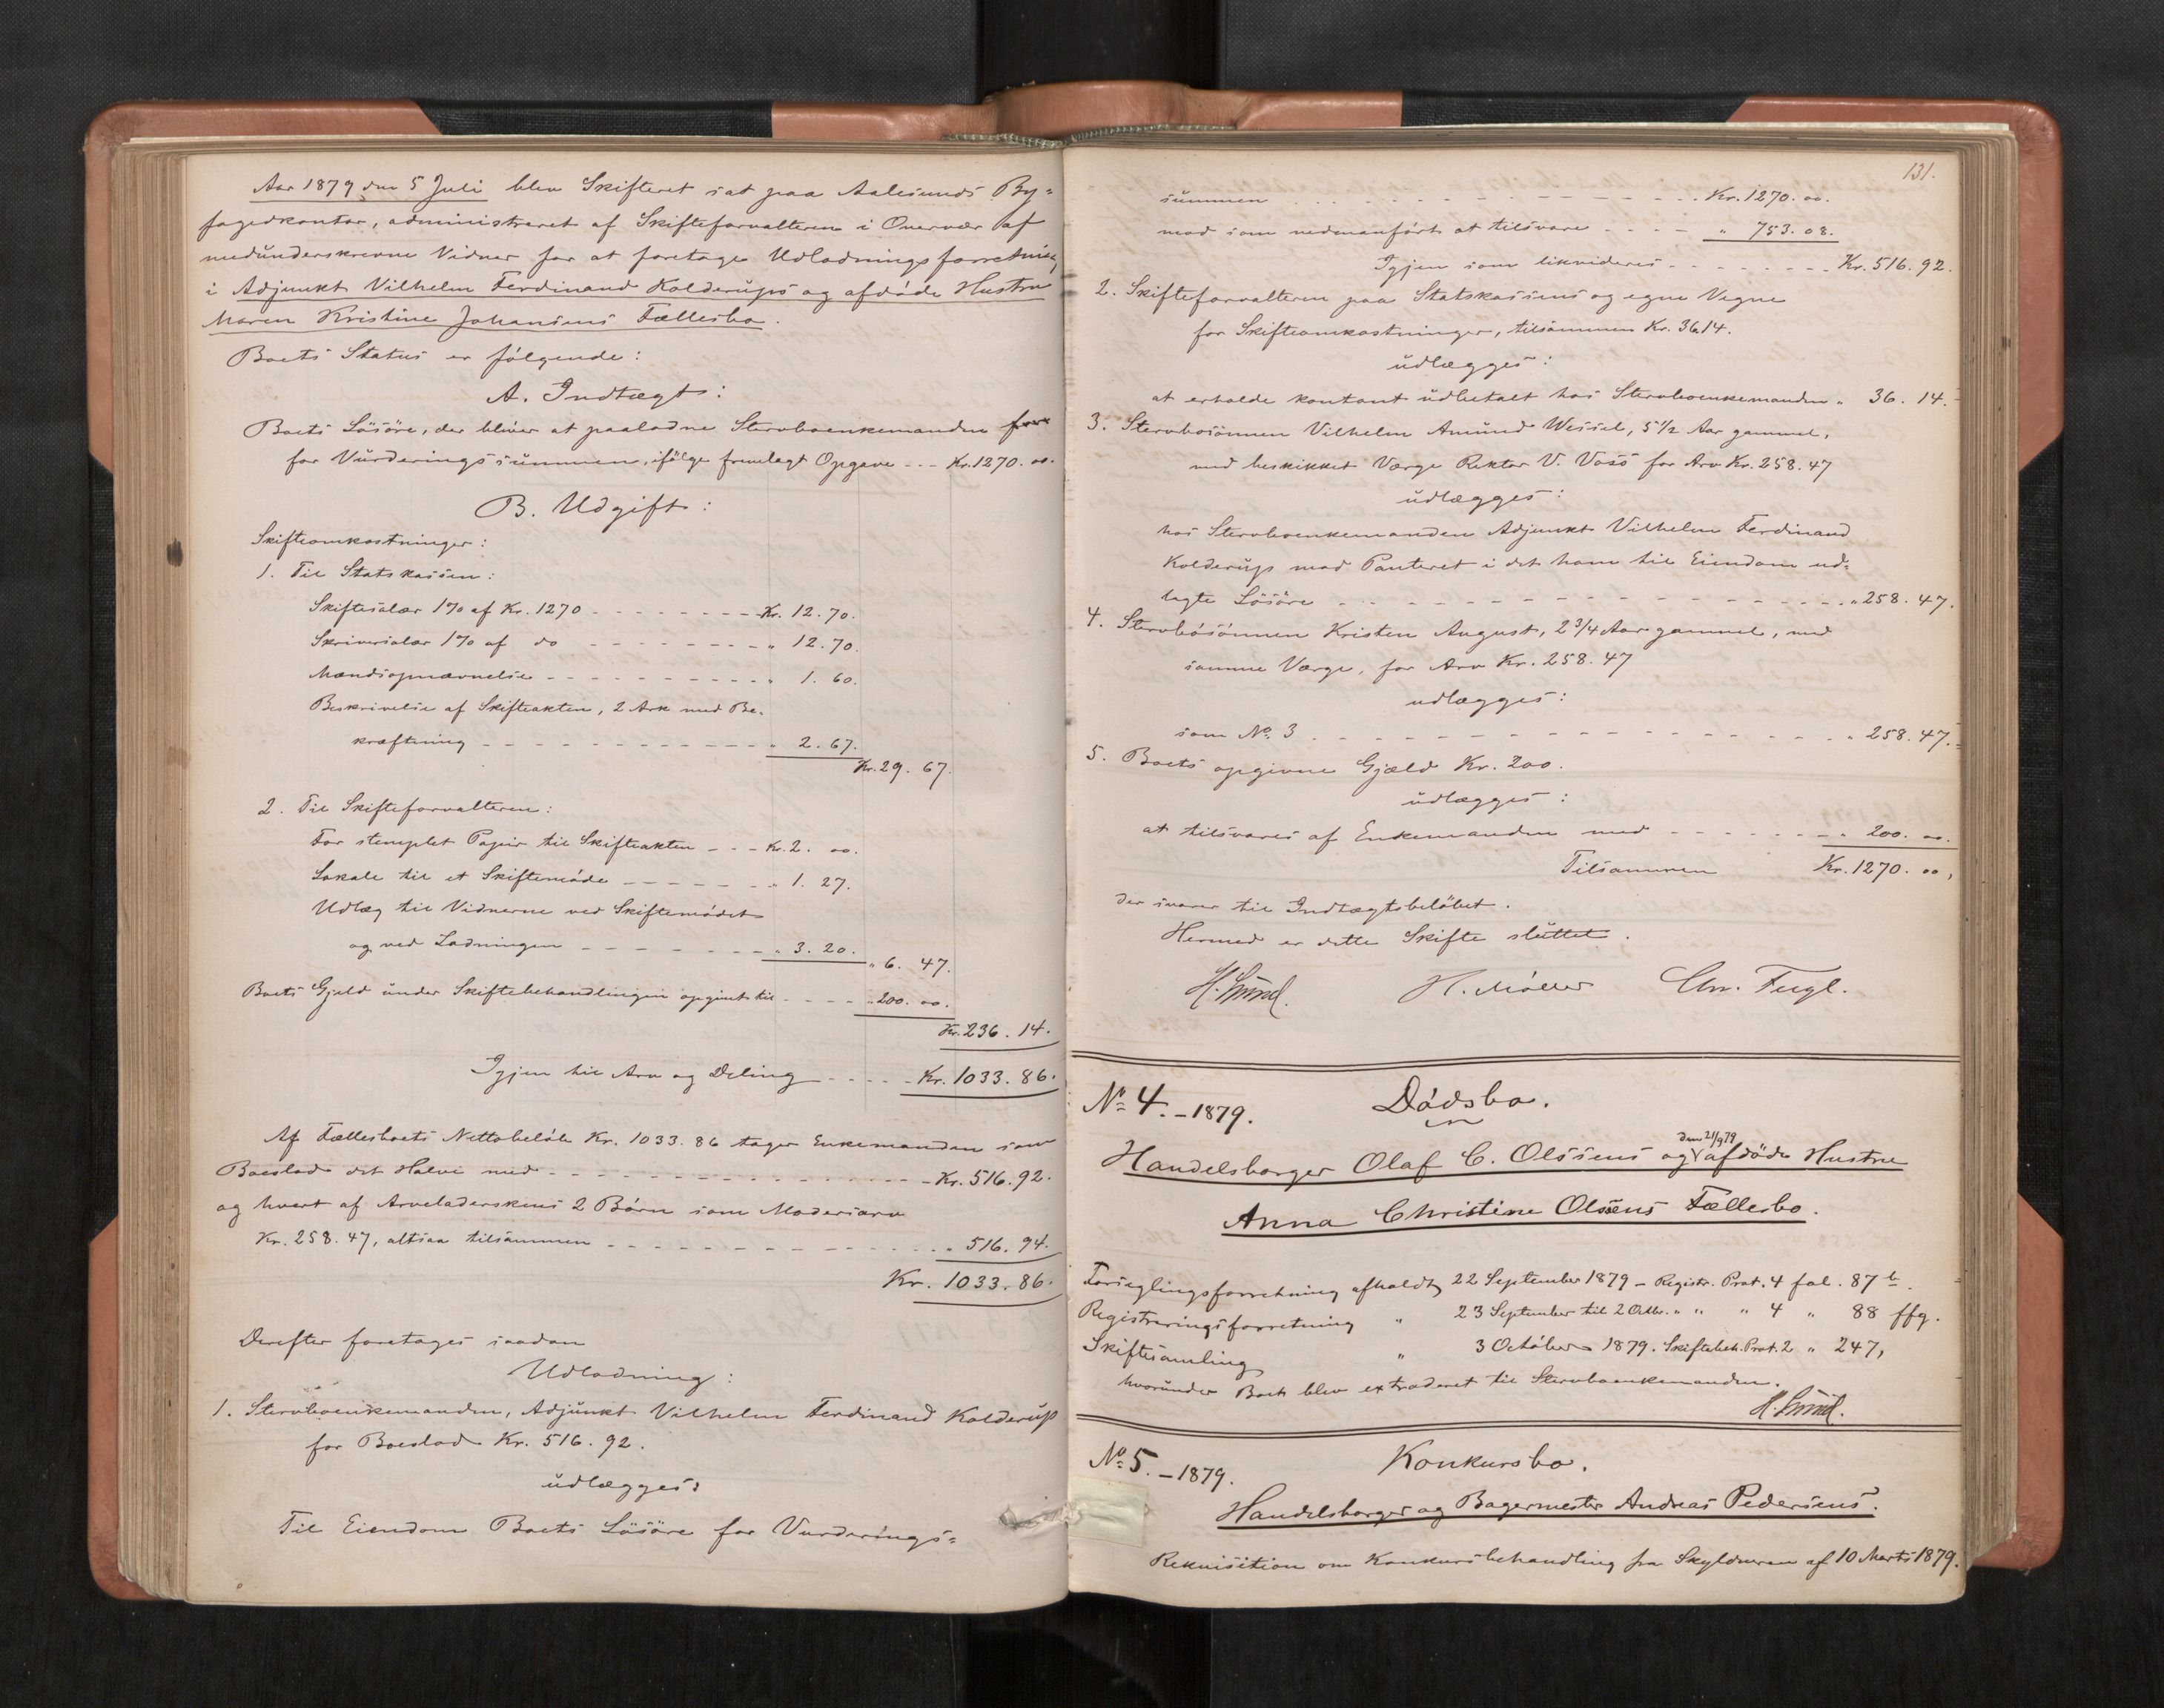 Aar 1879 den 5 Juli blev Skifteret sat paa Aalesunds By-
fogedkontor, administreret af Skifteforvalteren i Overvær af
medunderskrevne Vidner for at foretage Udlodningsforretning
i Adjunkt Vilhelm Ferdinand Kolderups og afdøde Hustru
Maren Kristine Johansens Fællesbo.
Boets Status er følgende:
A. Indtægt:
Boets Løsøre, der bliver at paalodne Stervboenkemanden
for Vurderingssummen, ifølge fremlagt Opgave - - - Kr. 1270. oo.
B. Udgift:
Skifteomkostninger:
1. Til Statskassen:
Skiftesalær 1% af Kr. 1270 - - - Kr. 12. 70.
Skriversalær 1% af do - - - " 12. 70.
Mandsopnævnelse - - - " 1. 60.
Beskrivelse af Skifteakten, 2 Ark med Be-
kræftning - - - " 2. 67.
Kr. 29. 67.
2. Til Skifteforvalteren:
For stemplet Papir til Skifteakten - - - Kr. 2. oo.
Lokale til et Skiftemøde - - - " 1. 27.
Udlæg til Vidnerne ved Skiftemødet
og ved Lodningen - - - " 3. 20.
" 6. 47.
Boets Gjeld under Skiftebehandlingen opgivet til - - - " 200. oo.
Kr. 236. 14.
Igjen til Arv og Deling - - - Kr. 1033. 86.
Af Fællesboets Nettobeløb Kr. 1033. 86 tager Enkemanden som
Boeslod det Halve med - - - Kr. 516. 92.
og hvert af Arveladerskens 2 Børn som Modersarv
Kr. 258. 47, altsaa tilsammen - - - " 516. 94.
Kr. 1033. 86.
Derefter foretages saadan
Udlodning:
1. Stervboenkemanden, Adjunkt Vilhelm Ferdinand Kolderup
for Boeslod Kr. 516. 92.
udlægges:
Til Eiendom Boets Løsøre for Vurderings-
131.
summen - - - Kr. 1270. oo.
mod som nedenanført at tilsvare - - - " 753. 08.
Igjen som likvideres - - - Kr. 516. 92.
2. Skifteforvalteren paa Statskassens og egne Vegne
for Skifteomkostninger, tilsammen Kr. 36.14.
udlægges:
at erholde kontant udbetalt hos Stervboenkemanden " 36. 14.
3. Stervbosønnen Vilhelm Amund Wessel, 5 1/2 Aar gammel,
med beskikket Værge Rektor V. Voss for Arv Kr. 258. 47
udlægges:
hos Stervboenkemanden Adjunkt Vilhelm Ferdinand
Kolderup mod Panteret i det ham til Eiendom ud-
lagte Løsøre - - - " 258. 47.
4. Stervbosønnen Kristen August, 2 3/4 Aar gammel, med
samme Værge, for Arv Kr. 258. 47
udlægges:
som No. 3 - - - " 258. 47.
5. Boets opgivne Gjæld Kr. 200.
udlægges:
at tilsvares af Enkemanden med - - - " 200. oo.
Tilsammen Kr. 1270. oo,
der svarer til Indtægtsbeløbet.
Hermed er dette Skifte sluttet.
H. Møller Chr. Fugl.
No. 4. - 1879. Dødsbo.
Handelsborger Olaf C. Olssens og den 21/9 79 afdøde Hustru
Anna Christine Olsens Fællesbo.
Forseglingsforretning afholdt 22 September 1879 - Registr. Prot. 4 fol. 87 b.
Registreringsforretning " 23 September til 2 Octbr. " " " 4 " 88 ffg.
Skiftesamling " 3 October 1879. Skiftebeh. Prot. 2 " 247,
hvorunder Boet blev extraderet til Stervboenkemanden.
No. 5. - 1879. Konkursbo.
Handelsborger og Bagermester Andreas Pedersens.
Rekvisition om Konkursbehandling fra Skyldneren af 10 Marts 1879.